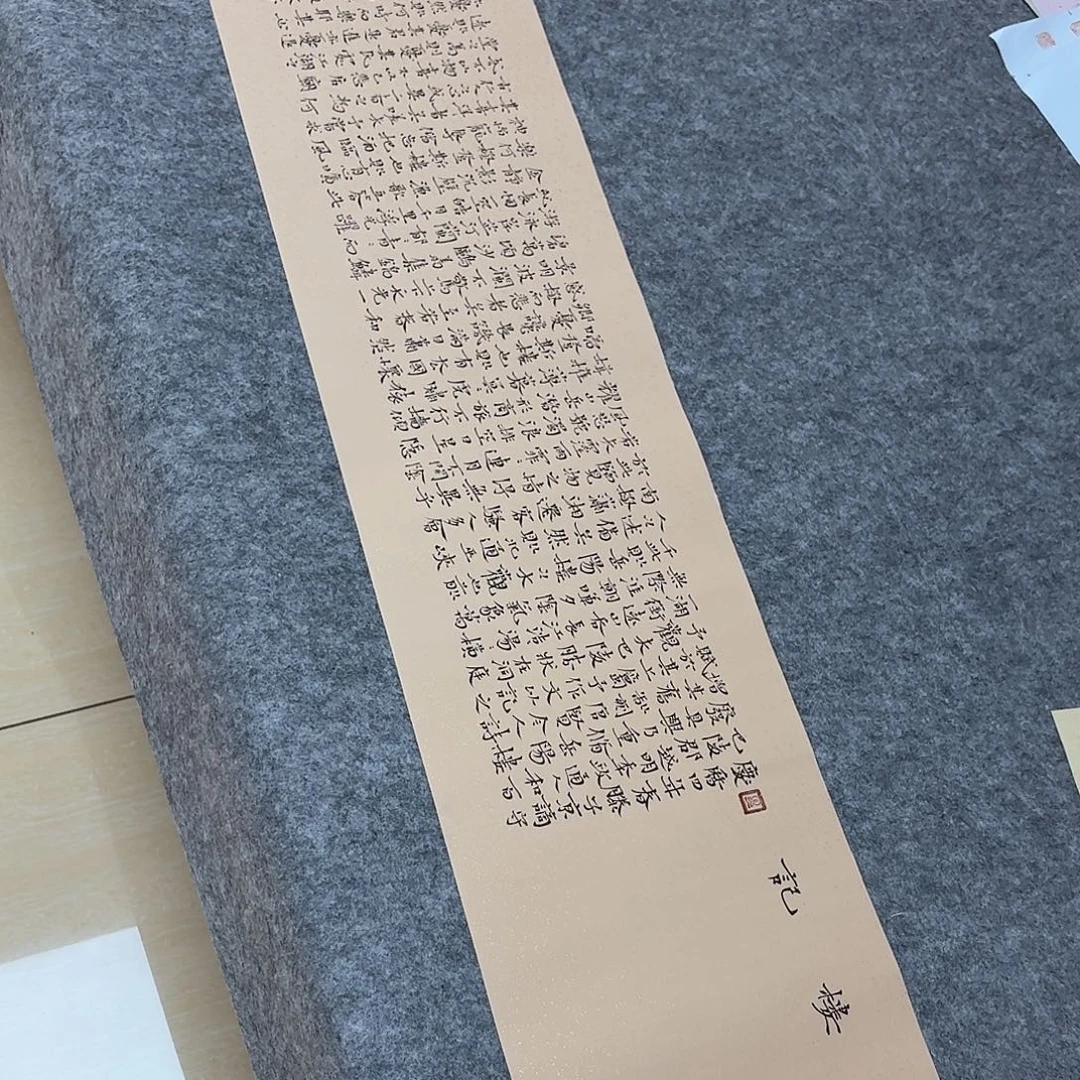 樓
記
慶曆四年春滕子京謫守
巴陵郡越明年政通人和百
廢具興乃重修岳陽樓
增其舊制刻唐賢今人詩
賦於其上屬予作文以記之
予觀夫巴陵勝狀在洞庭
一湖銜遠山吞長江浩浩湯湯橫
無際涯朝暉夕陰氣象萬
千此則岳陽樓之大觀也前
人之述備矣然則北通巫峽
南極瀟湘遷客騷人多會
於此覽物之情得無異乎
若夫霪雨霏霏連月不開陰
風怒號濁浪排空日星隱
耀山岳潛形商旅不行檣傾
楫摧薄暮冥冥虎嘯猿
啼登斯樓也則有去國懷
鄉憂讒畏譏滿目蕭然
感極而悲者矣至若春和
景明波瀾不驚上下天光一
碧萬頃沙鷗翔集錦鱗
游泳岸芷汀蘭郁郁青青而
或長煙一空皓月千里浮光躍
金靜影沉璧漁歌互答此
樂何極登斯樓也則有心曠
神怡寵辱偕忘把酒臨風
其喜洋洋者矣嗟夫予嘗求
古仁人之心或異二者之為何
哉不以物喜不以己悲居廟
堂之高則憂其民處江湖
之遠則憂其君是進